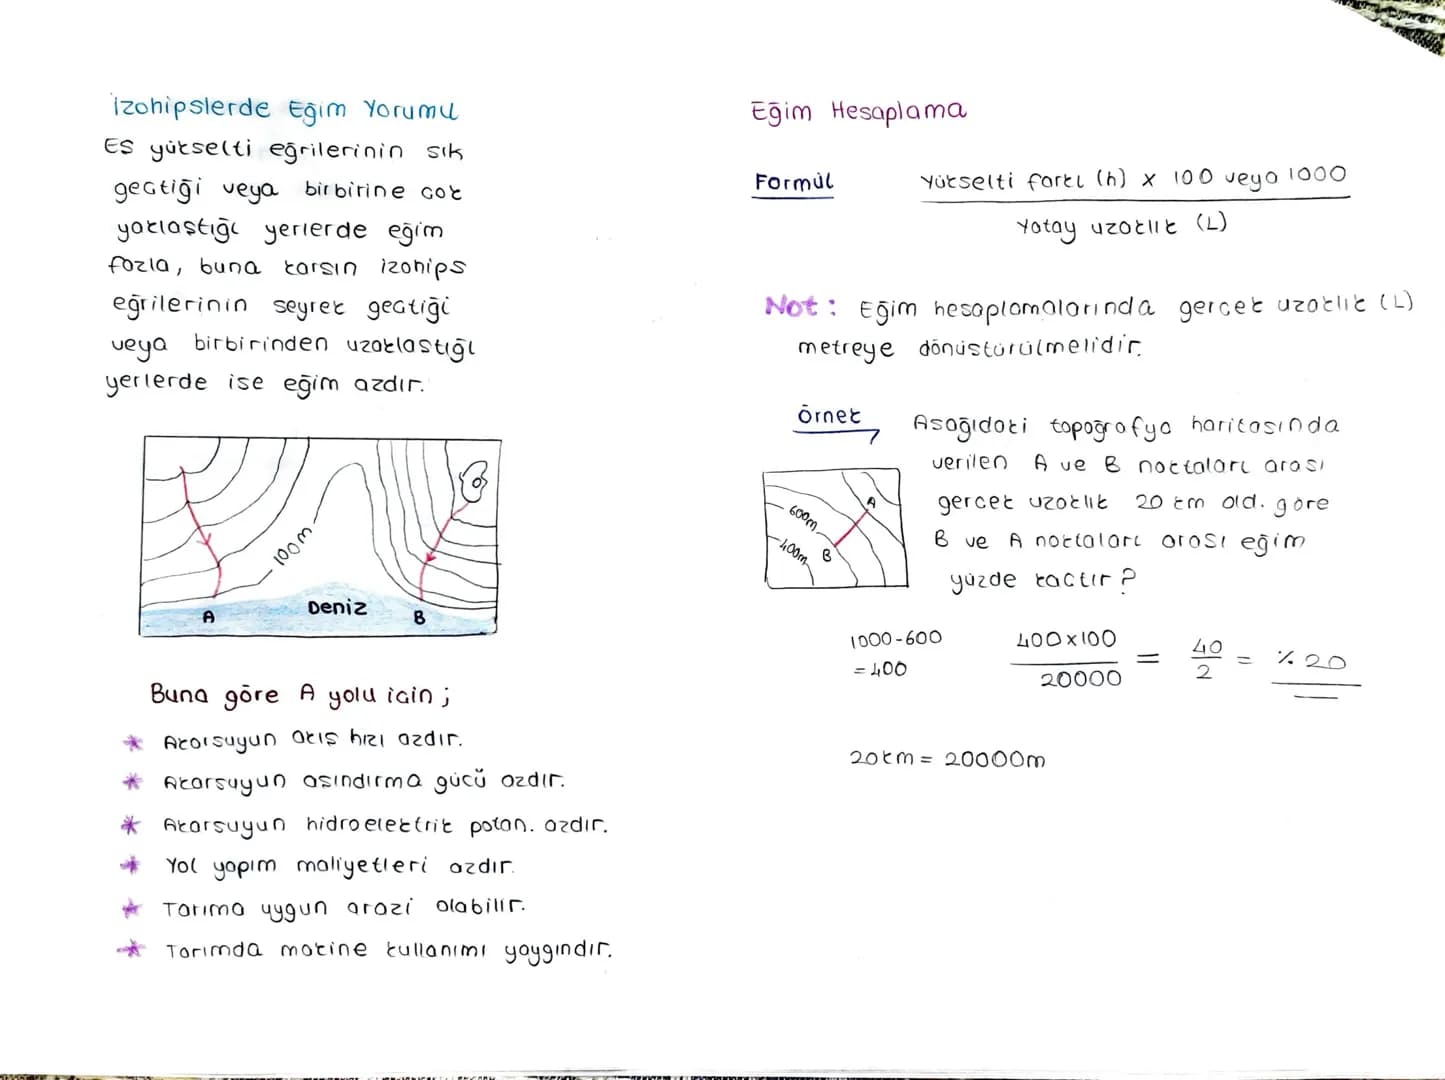 izohipslerde Eğim Yorumu
Eş yükselti eğrilerinin sık
geçtiği veya birbirine çok
yaklaştığı yerlerde eğim
fazla, buna karşın izohips
eğrilerinin seyrek geçtiği
veya birbirinden uzaklaştığı
yerlerde ise eğim azdır.
100m
Deniz
A
B
Buna göre A yolu için;
* Akarsuyun akış hızı azdır.
* Akarsuyun aşındırma gücü azdır.
* Akarsuyun hidroelektrik potan. azdır.
* Yol yapım maliyetleri azdır.
* Tarıma uygun arazi olabilir.
* Tarımda makine kullanımı yaygındır.
Eğim Hesaplama
Formül
Yükselti farkı (h) x 100 veya 1000
Yatay uzaklık (L)
Not: Eğim hesaplamalarında gerçek uzaklık (L)
metreye dönüştürülmelidir.
Örnek
Aşağıdaki topoğrafya haritasında
verilen A ve B noktaları arası
gerçek uzaklık 20 km old. göre
B ve A noktaları arası eğim
yüzde kaçtır?
A
600m
B
400m
1000-600
=400
400x100
20000
=
40
2
= % 20
20km = 20000m